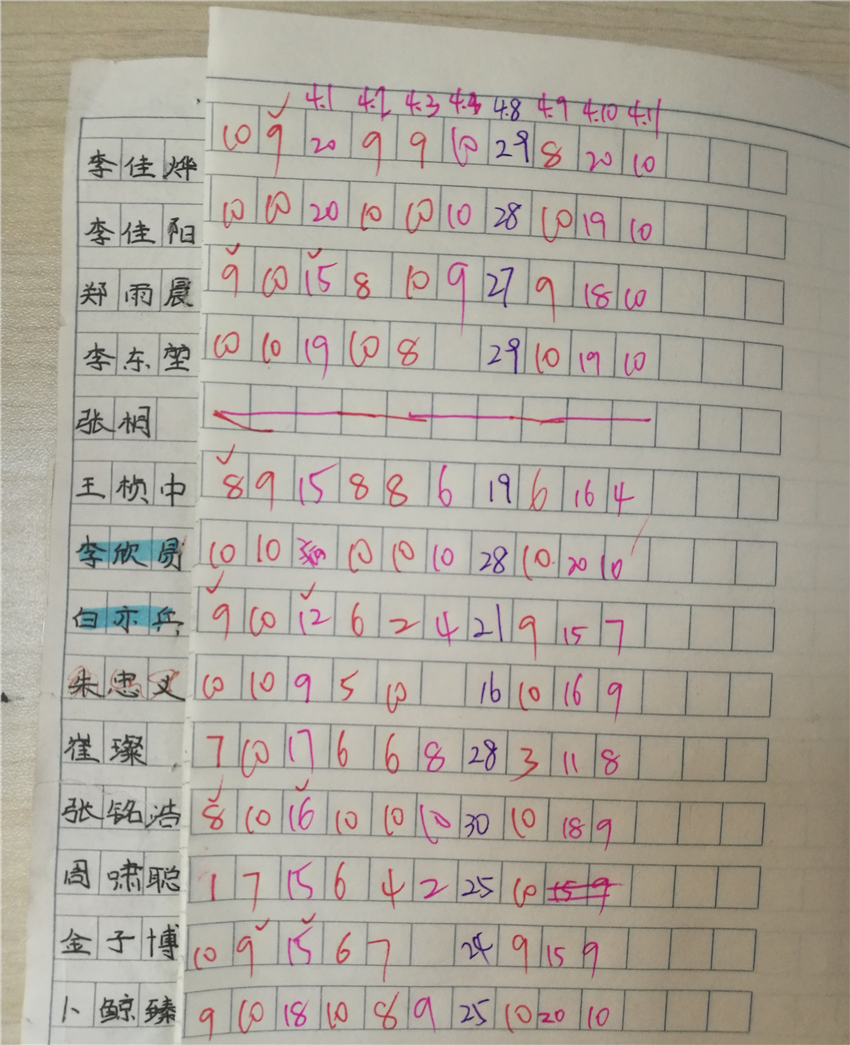 4.1 4.2 4.3 4.4 4.8 4.9 4.10 4.11
李佳烨 10 9 20 9 9 10 29 8 20 10
李佳阳 10 10 20 10 10 10 28 10 19 10
郑雨晨 9 10 15 8 10 9 27 9 18 10
李东堃 10 10 19 10 8 29 10 19 10
张桐
王桢中 8 9 15 8 8 6 19 6 16 4
李欣 10 10 10 10 10 28 10 20 10
白亦兵 9 10 12 6 2 4 21 9 15 7
朱忠义 10 10 9 5 10 16 10 16 9
崔璨 7 10 17 6 6 8 28 3 11 8
张铭浩 8 10 16 10 10 10 30 10 18 9
周啸聪 1 7 15 6 4 2 25 10 15 9
金子博 10 9 15 6 7 24 9 15 9
卜鲸臻 9 10 18 10 8 9 25 10 20 10